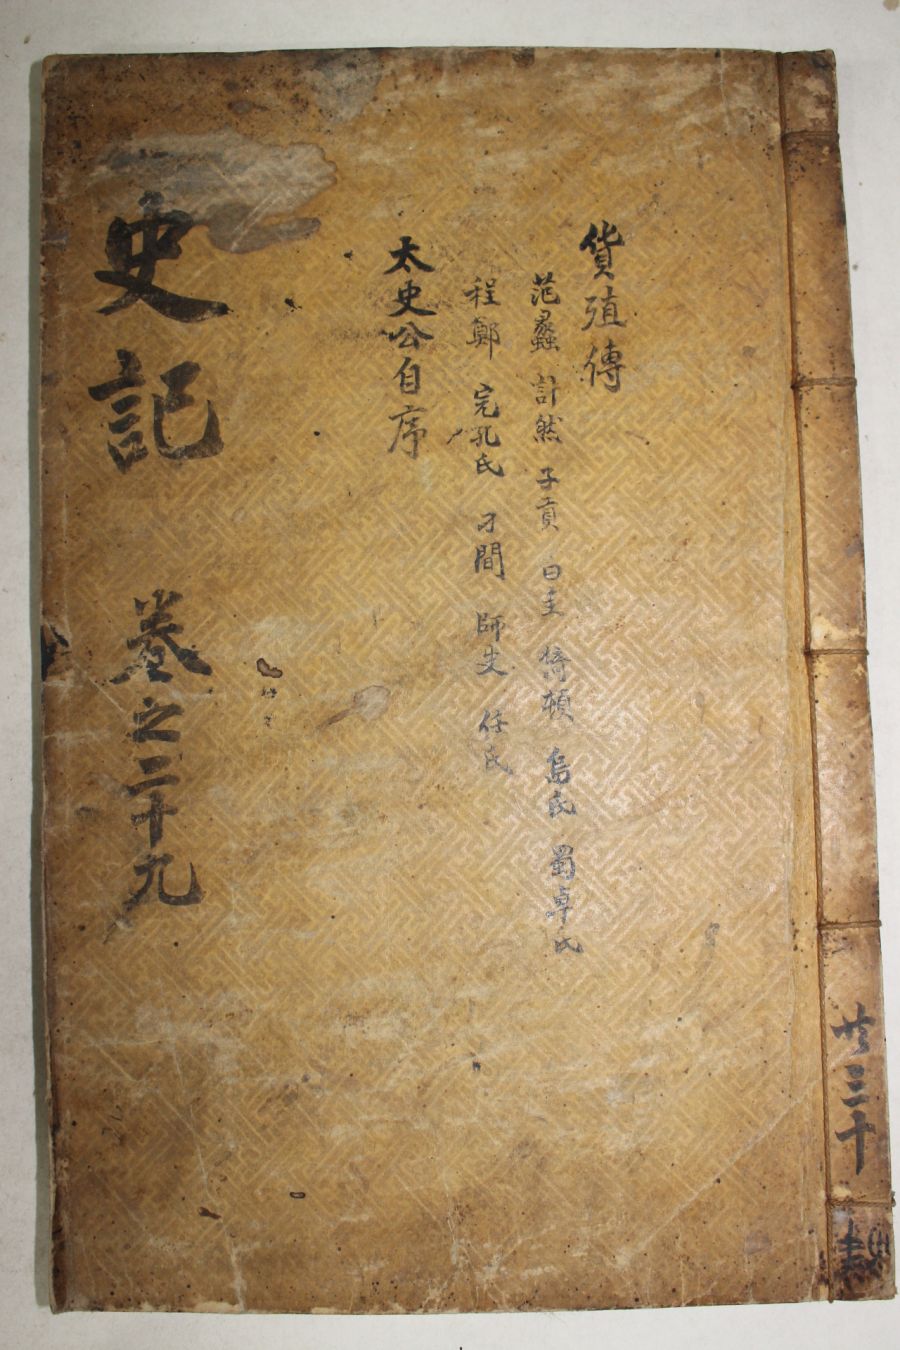 貨殖傳
范蠡 計然 子貢 白圭 猗頓 烏氏 蜀卓氏
程鄭 宛孔氏 刁間 師史 任氏
太史公自序
史記 卷之二十九
共三十